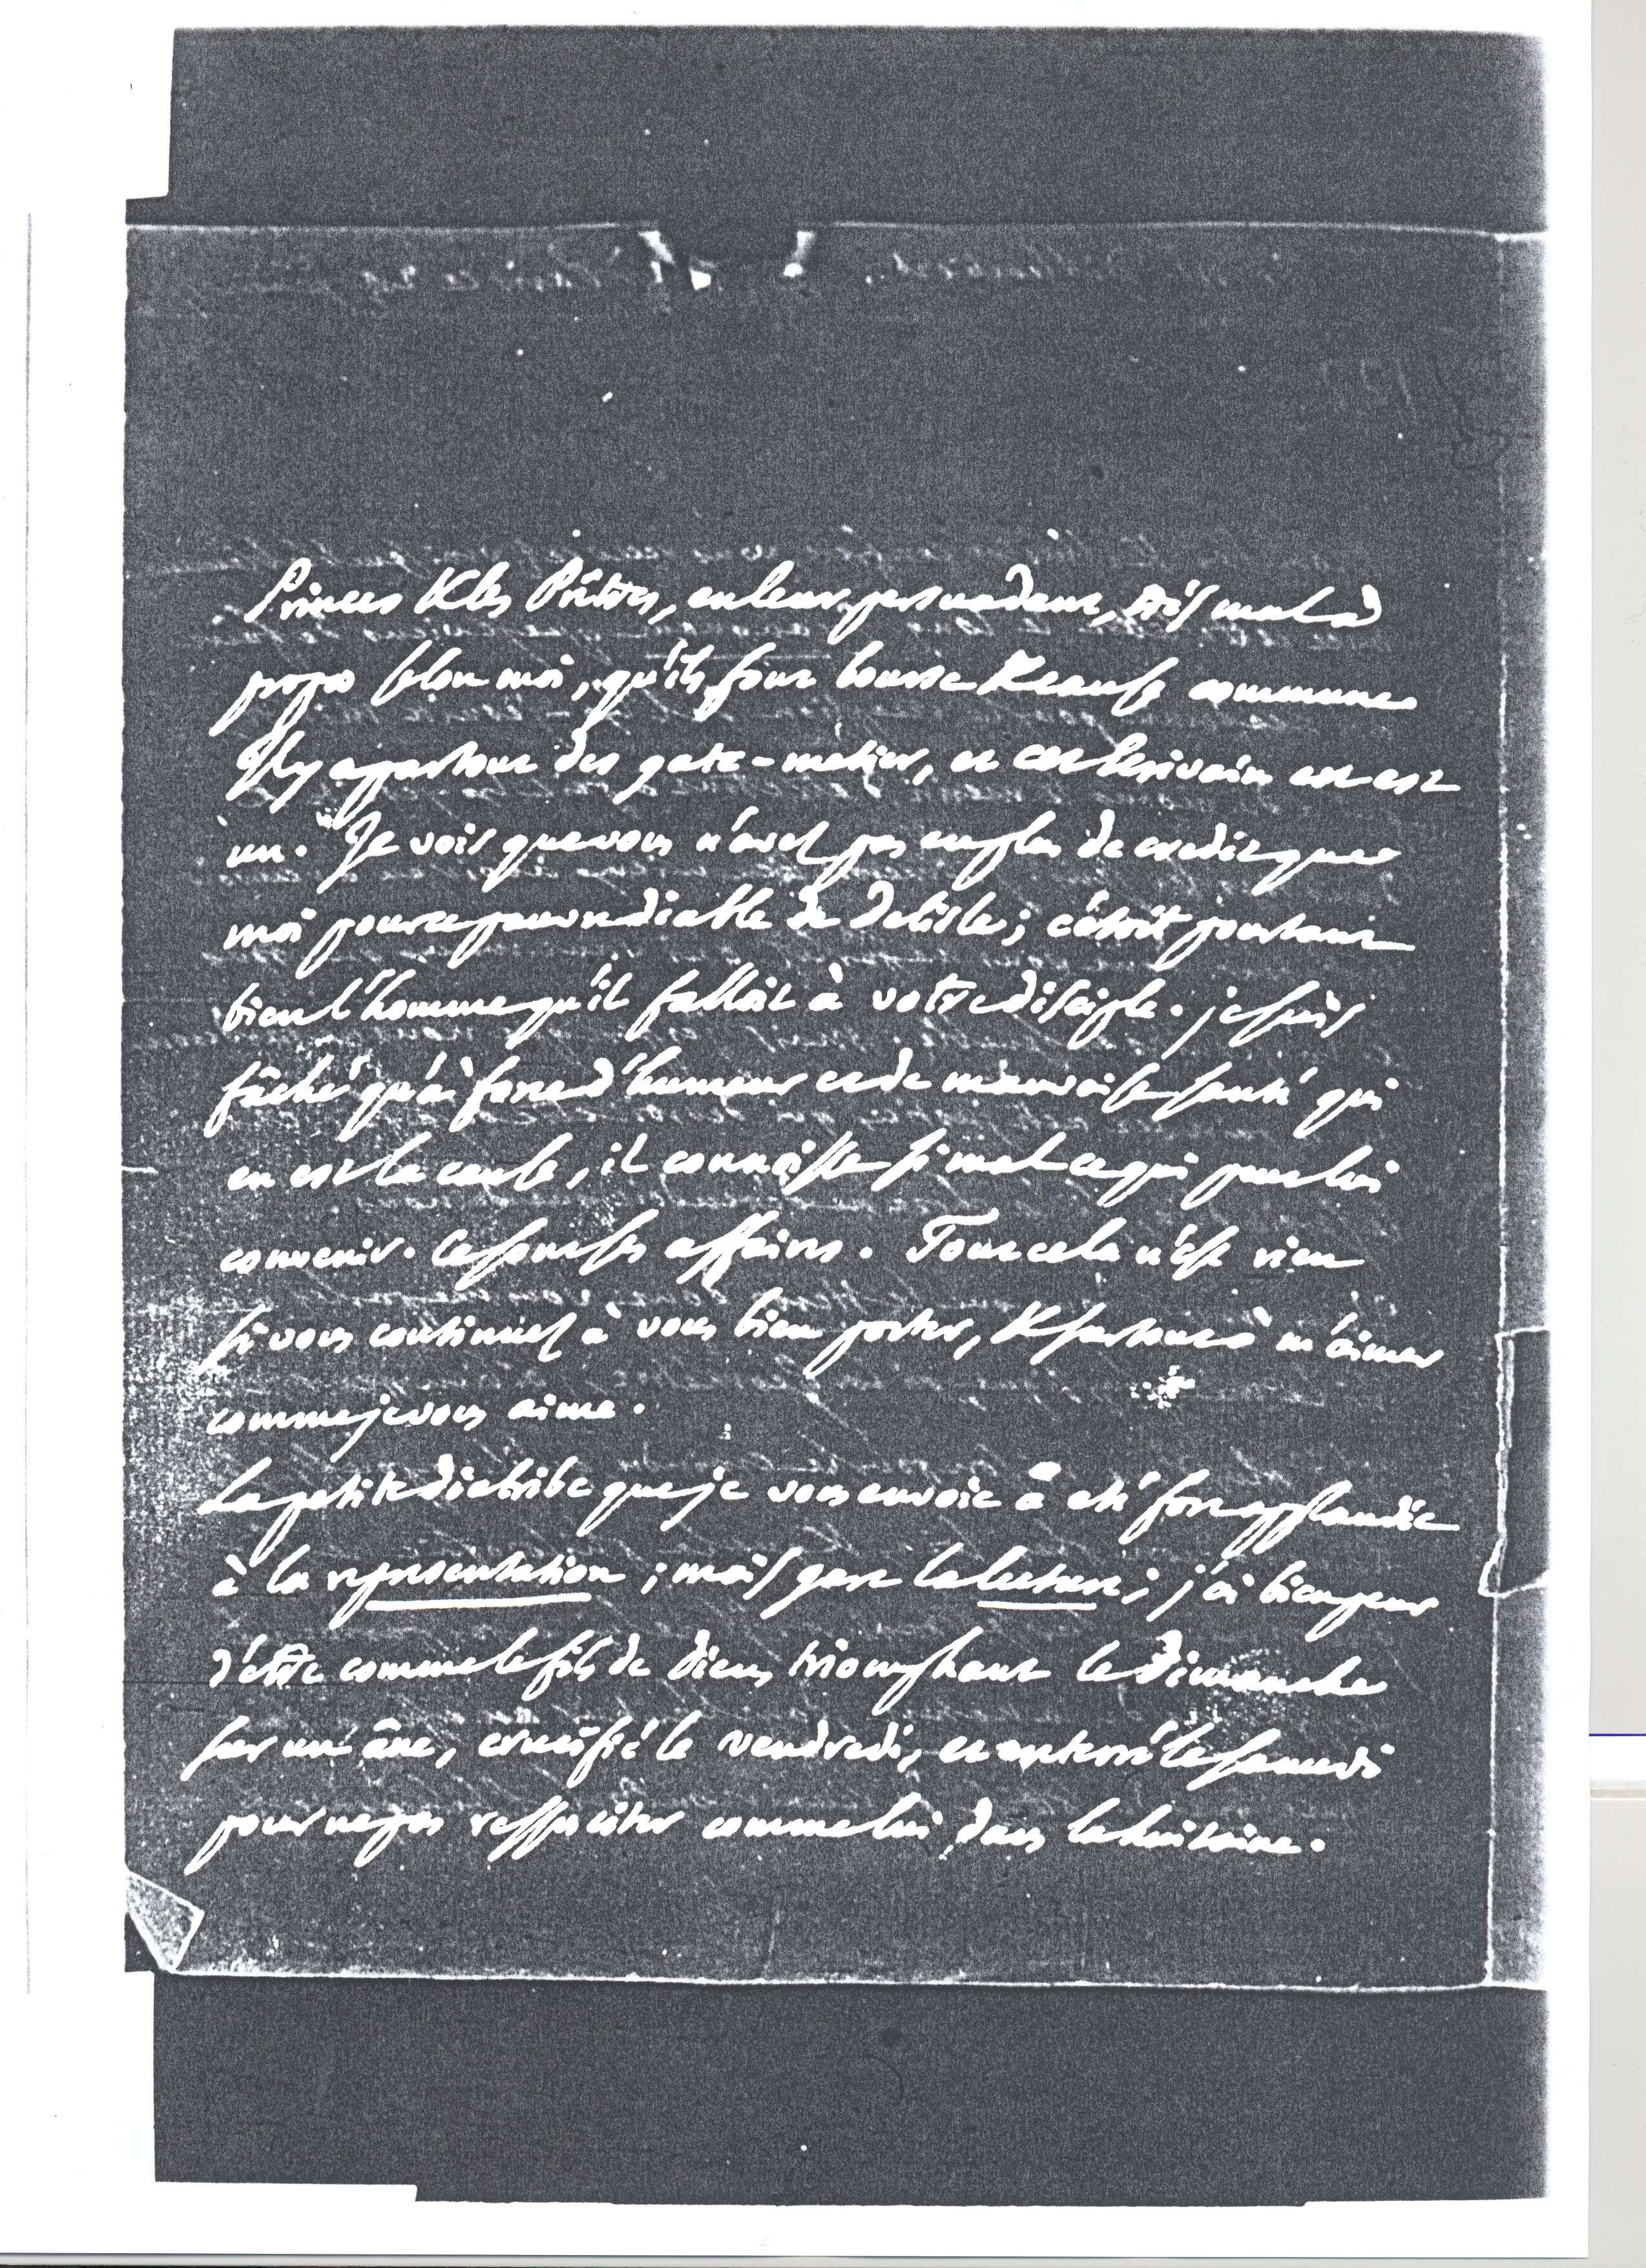 Princes & les Prêtres, en leur persuadant, très mal à
propos selon moi, qu'ils font bourse & cause commune
Il y a partout des gate-metier, et cet Ecrivain en est
un. Je vois que vous n'avez pas eu plus de credit que
moi pour ce pauvre diable de Delisle; c'étoit pourtant
bien l'homme qu'il falloit à votre disciple. je suis
fâché qu'à force d'humeur et de mauvaise santé qui
en est la cause, il connoisse si mal ce qui peut lui
convenir. Ce sont ses affaires. Tout cela n'est rien
si vous continuez à vous bien porter, & surtout à m'aimer
comme je vous aime.
La petite diatribe que je vous envoie a eté fort applaudie
à la representation; mais gare la lecture; j'ai bien peur
d'être comme le fils de Dieu, triomphant le Dimanche
sur un âne, crucifié le vendredi, et enterré le samedi
pour ne pas ressusciter comme lui dans la huitaine.